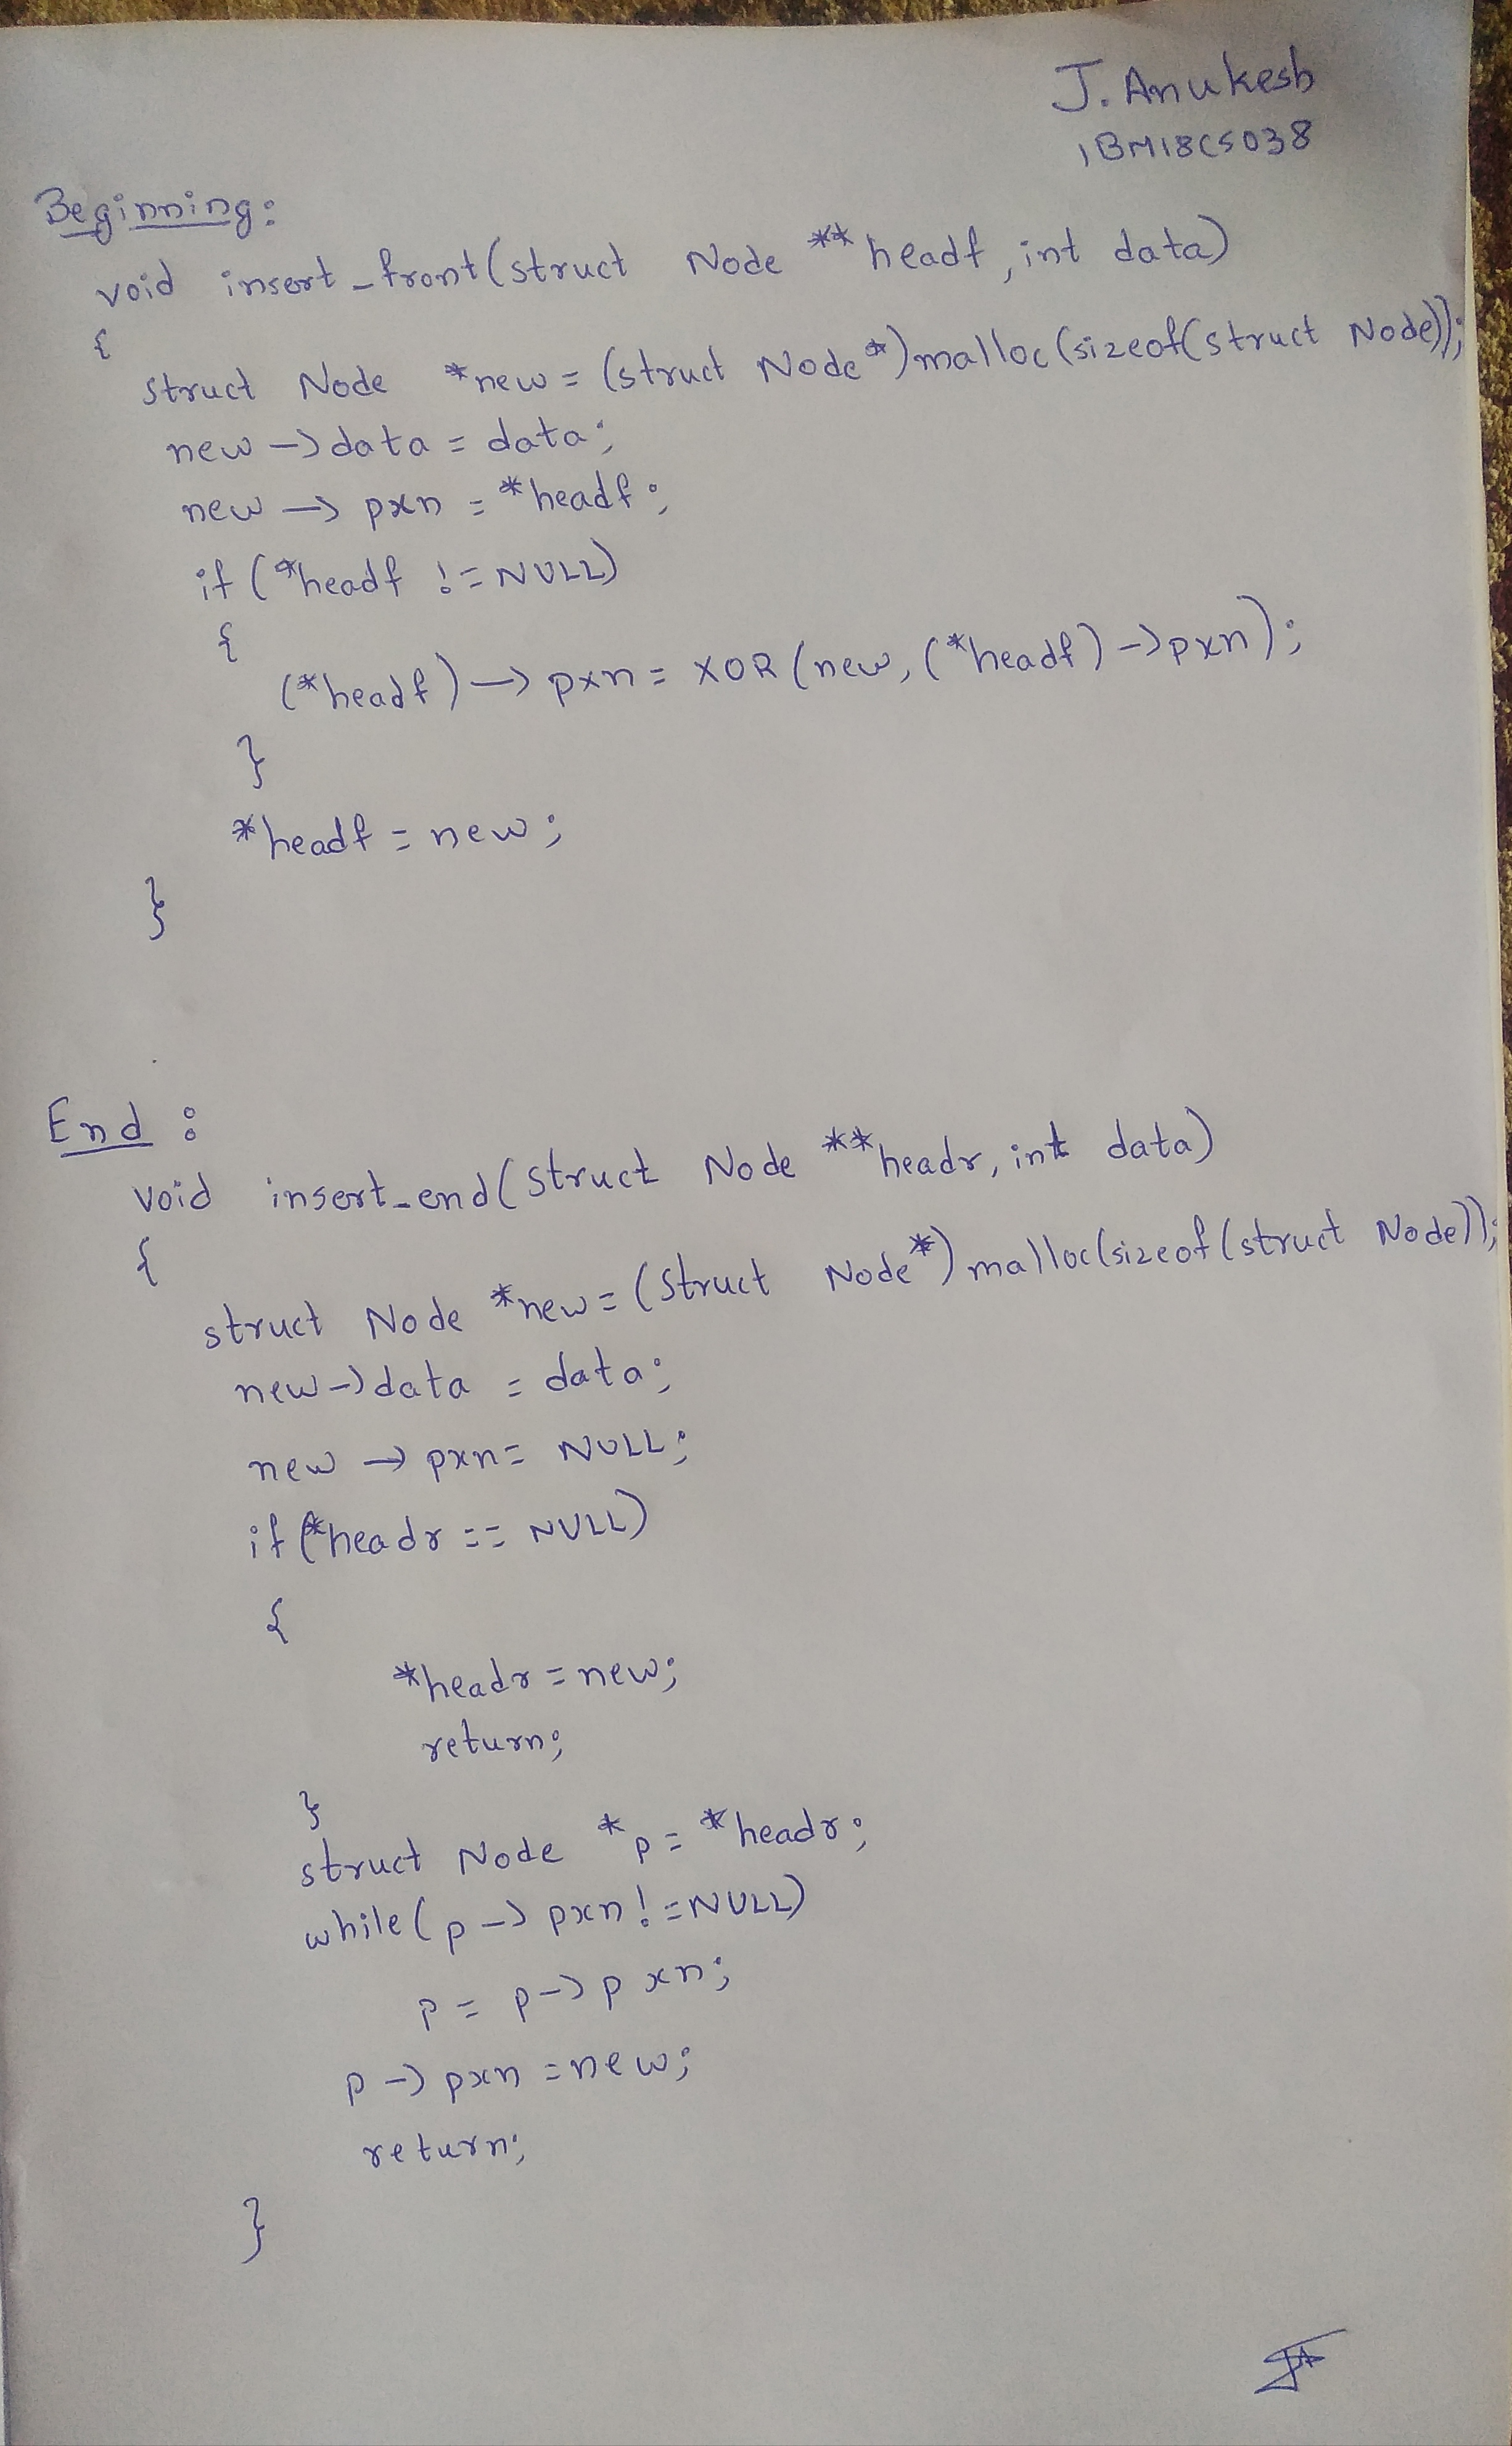 J. Anukesh
1BM18CS038
Beginning:
void insert_front(struct Node **headf, int data)
{
struct Node *new = (struct Node*)malloc(sizeof(struct Node));
new->data = data;
new -> pxn = *headf;
if (*headf != NULL)
{
(*headf) -> pxn = XOR (new, (*headf) -> pxn);
}
*headf = new;
}
End :
void insert_end(struct Node **headr, int data)
{
struct Node *new = (struct Node*) malloc(sizeof(struct Node));
new->data = data;
new -> pxn = NULL;
if (*headr == NULL)
{
*headr = new;
return;
}
struct Node *p = *headr;
while(p -> pxn != NULL)
p = p -> pxn;
p -> pxn = new;
return;
}